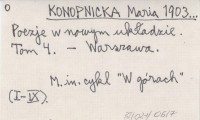 O
KONOPNICKA Maria 1903...
Poezje w nowym układzie.
Tom 4. – Warszawa.
M.in. cykl "W górach"
(I-IX).